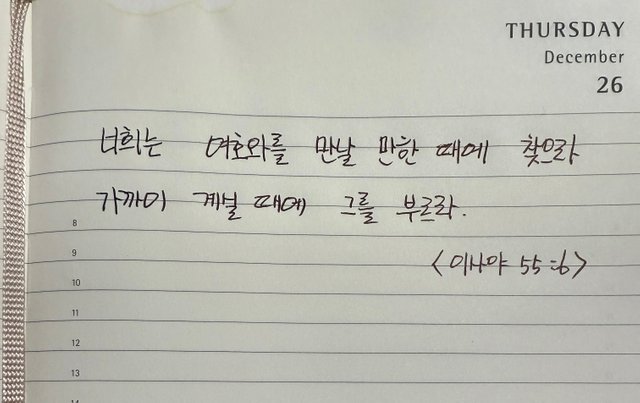 THURSDAY
December
26
너희는 여호와를 만날 만한 때에 찾으라
가까이 계실 때에 그를 부르라.
8
<이사야 55:6>
9
10
11
12
13